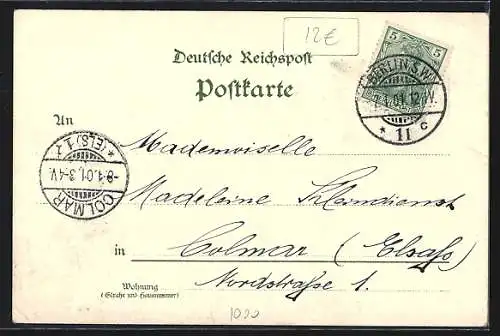 12€
Deutsche Reichspost
Postkarte
5 5
BERLIN S.W.
.1.01. 12 V.
* 11 c
An
Mademoiselle
* (ELS) 1 *
-8.1.01. 3-4V.
COLMAR
Madeleine Kleindienst
in Colmar (Elsaß)
Wohnung
(Straße und Hausnummer)
Nordstraße 1.
1000